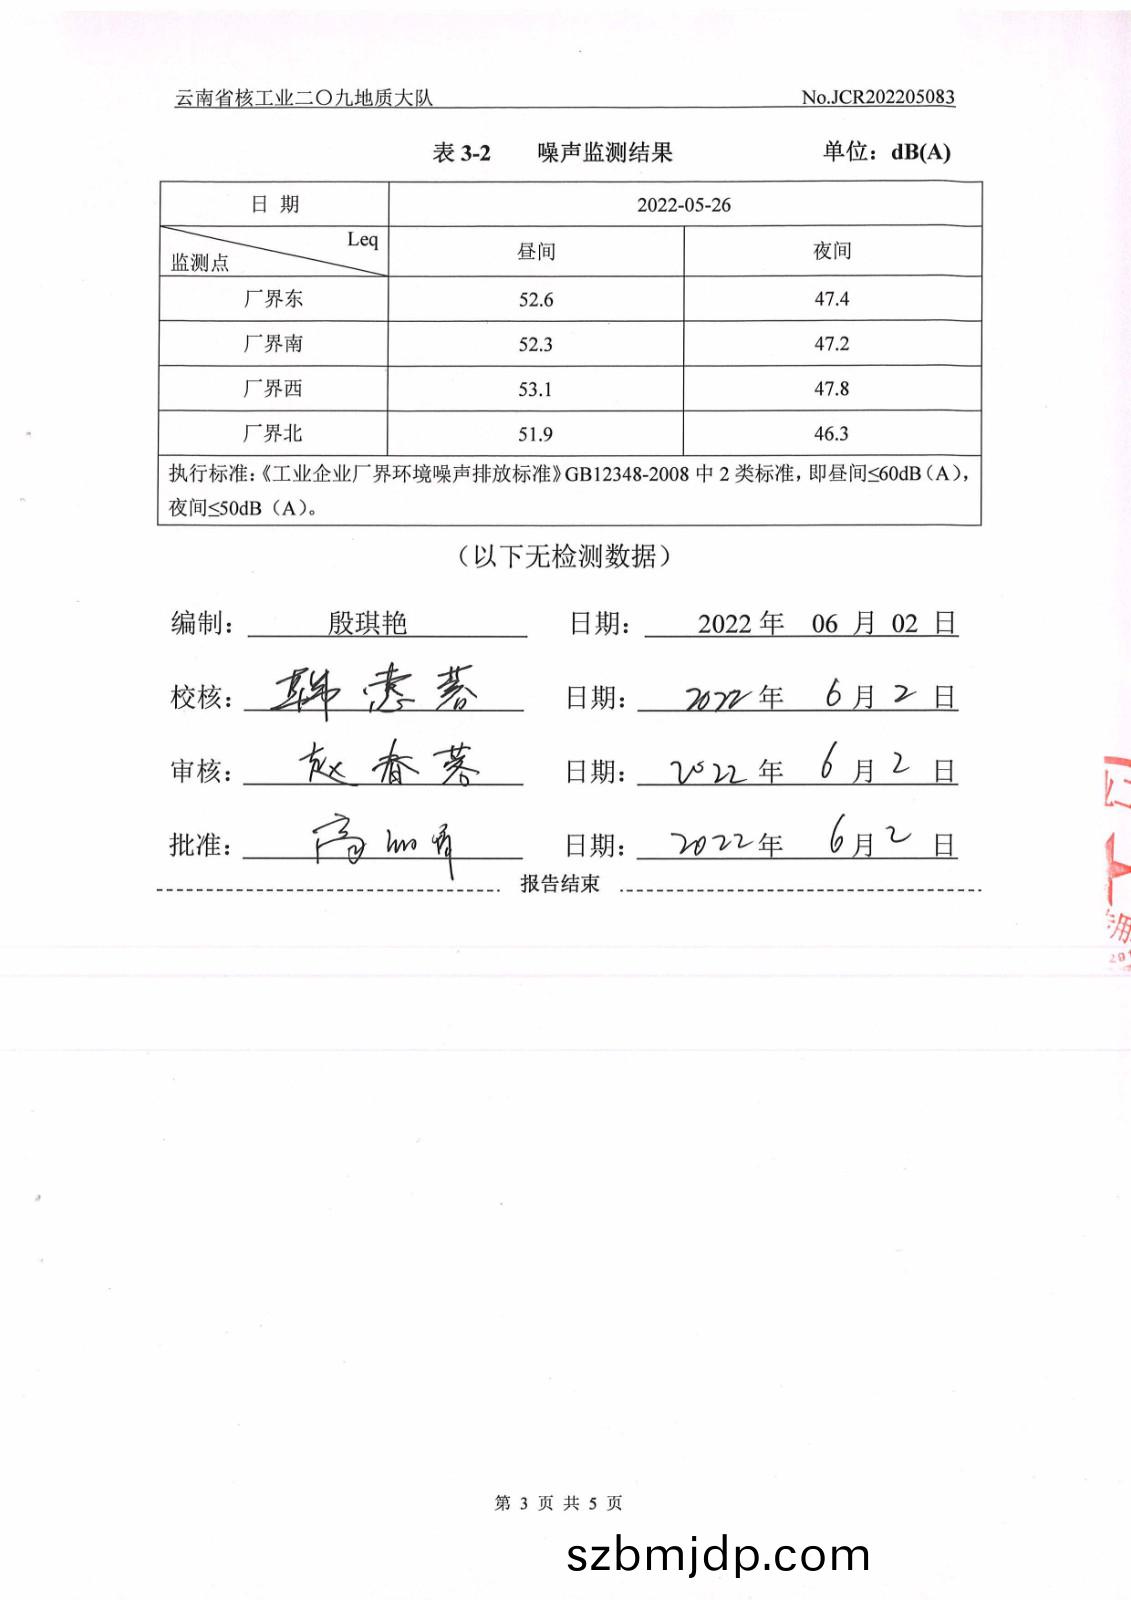 云南省核工业二〇九地质大队 No.JCR202205083
表 3-2 噪声监测结果 单位：dB(A)
日 期 2022-05-26
Leq
监测点 昼间 夜间
厂界东 52.6 47.4
厂界南 52.3 47.2
厂界西 53.1 47.8
厂界北 51.9 46.3
执行标准：《工业企业厂界环境噪声排放标准》GB12348-2008 中 2 类标准，即昼间≤60dB（A），
夜间≤50dB（A）。
（以下无检测数据）
编制： 殷琪艳 日期： 2022 年 06 月 02 日
校核： 韩惠蓉 日期： 2022 年 6 月 2 日
审核： 赵春蓉 日期： 2022 年 6 月 2 日
批准： 高 日期： 2022 年 6 月 2 日
报告结束
专用
第 3 页 共 5 页
szbmjdp.com